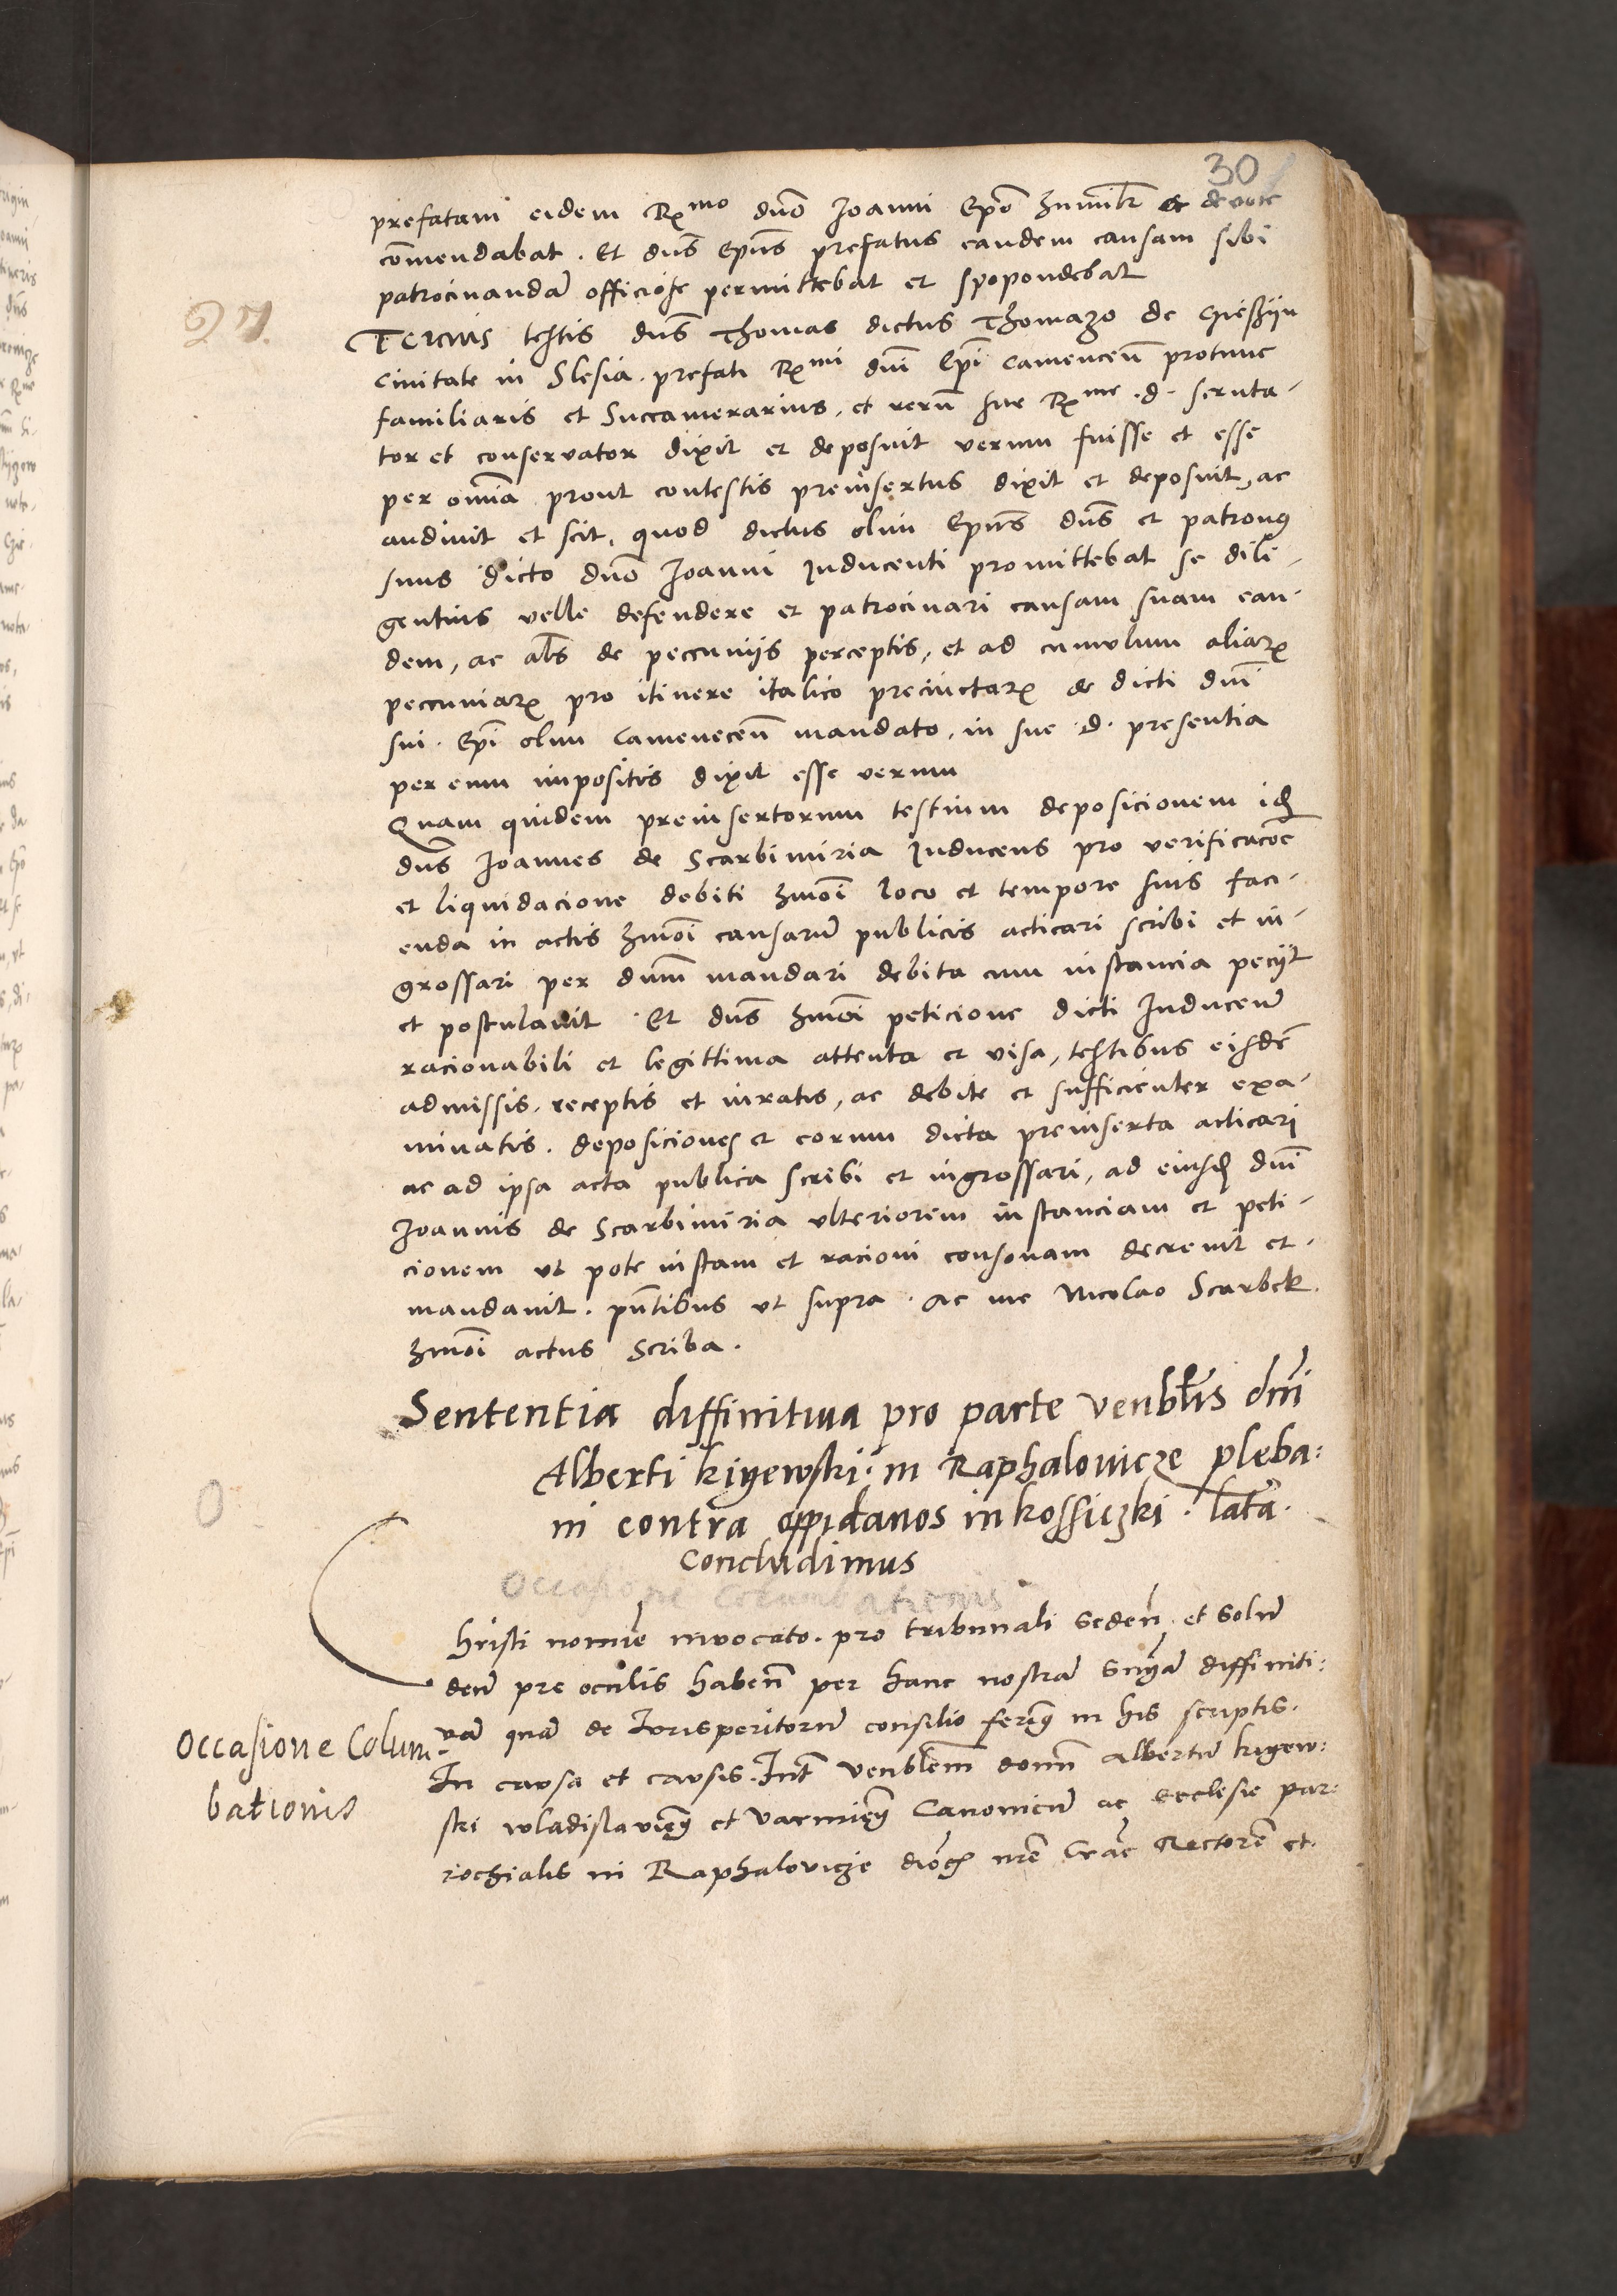 30
prefatam eidem Rmo dno Joanni Epo humilr et devote
comendabat. Et dns Epus prefatus eandem causam sibi
patrocinandā officiose permittebat et spopondebat
Tercius testis dns Thomas dictus Thomazo de Czieszijn
Civitate in Slesia. prefati Rmi dni Epi Camenecen protunc
familiaris et Succamerarius, et rerū sue Rme .d. scruta-
tor et conservator dixit et deposuit verum fuisse et esse
per omnia prout contestis preinsertus dixit et deposuit, ac
audiuit et scit, quod dictus olim Epus dns et patronus
suus dicto dno Joanni Inducenti promittebat se dili-
gentius velle defendere et patrocinari causam suam ean-
dem, ac als de peccunijs perceptis, et ad cumulum aliarꝝ
peccuniarꝝ pro itinere italico precinctarꝝ de dicti dni
sui. Epi olim Camenecen mandato, in sue .d. presentia
per eum impositis dixit esse verum
Quam quidem preinsertorum testium deposicionem idē
dns Joannes de Scarbimiria Inducens pro verificacōe
et liquidacione debiti hmōi loco et tempore suis faci-
enda in actis hmōi causarū publicis acticari scribi et in-
grossari per dnum mandari debita cum instancia pecijt
et postulauit. Et dns hmōi peticione dicti Inducen
racionabili et legittima attenta et visa, testibus eisdē
admissis. receptis et iuratis, ac debite et sufficienter exa-
minatis. deposiciones et eorum dicta preinserta acticari
ac ad ipsa acta publica scribi et ingrossari, ad eiusdē dni
Joannis de Scarbimiria ulteriorem instanciam et peti-
cionem ut pote iustam et racioni consonam decrevit et
mandauit. pntibus ut supra. Ac me Nicolao Scarbek.
hmōi actus Scriba.
Sententia diffinitiua pro parte venblis dni
Alberti kiyewski. in Raphalovicze pleba:
ni contra oppidanos in kossiczki. lata.
Concludimus
Occasione Columbationis
hristi nomīe invocato. pro tribunali Seden. et Solū
deū pre oculis haben per hanc nostrā Snyam diffiniti:
vā quā de Jurisperitorū consilio ferimus in his scriptis.
Occasione Colum-
bationis
In causa et causis. Int venblem domn Albertū kiyew:
ski wladislavien et Varmien Canonicū ac Ecclesie par:
rochialis in Raphalovicze dioc nre Crac Rectorē et.